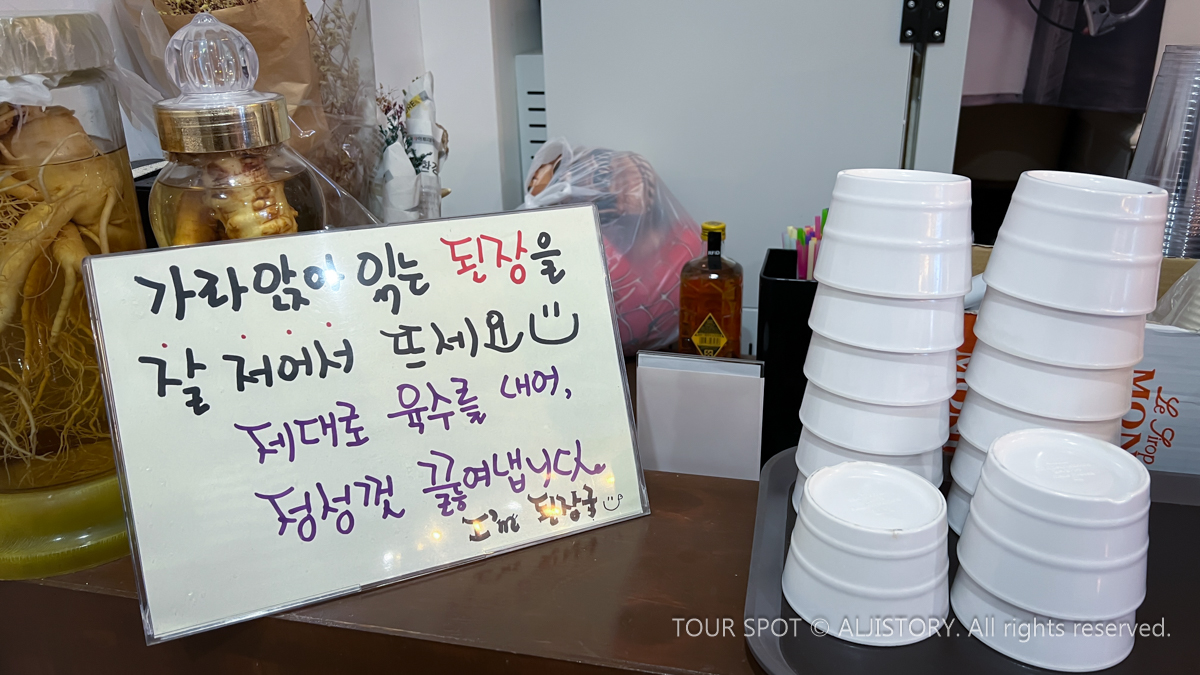 가라앉아 있는 된장을
잘 저어서 뜨세요
제대로 육수를 내어,
정성껏 끓여냅니다.
I'm 된장국
Le Sirop
MON
TOUR SPOT © ALJISTORY. All rights reserved.